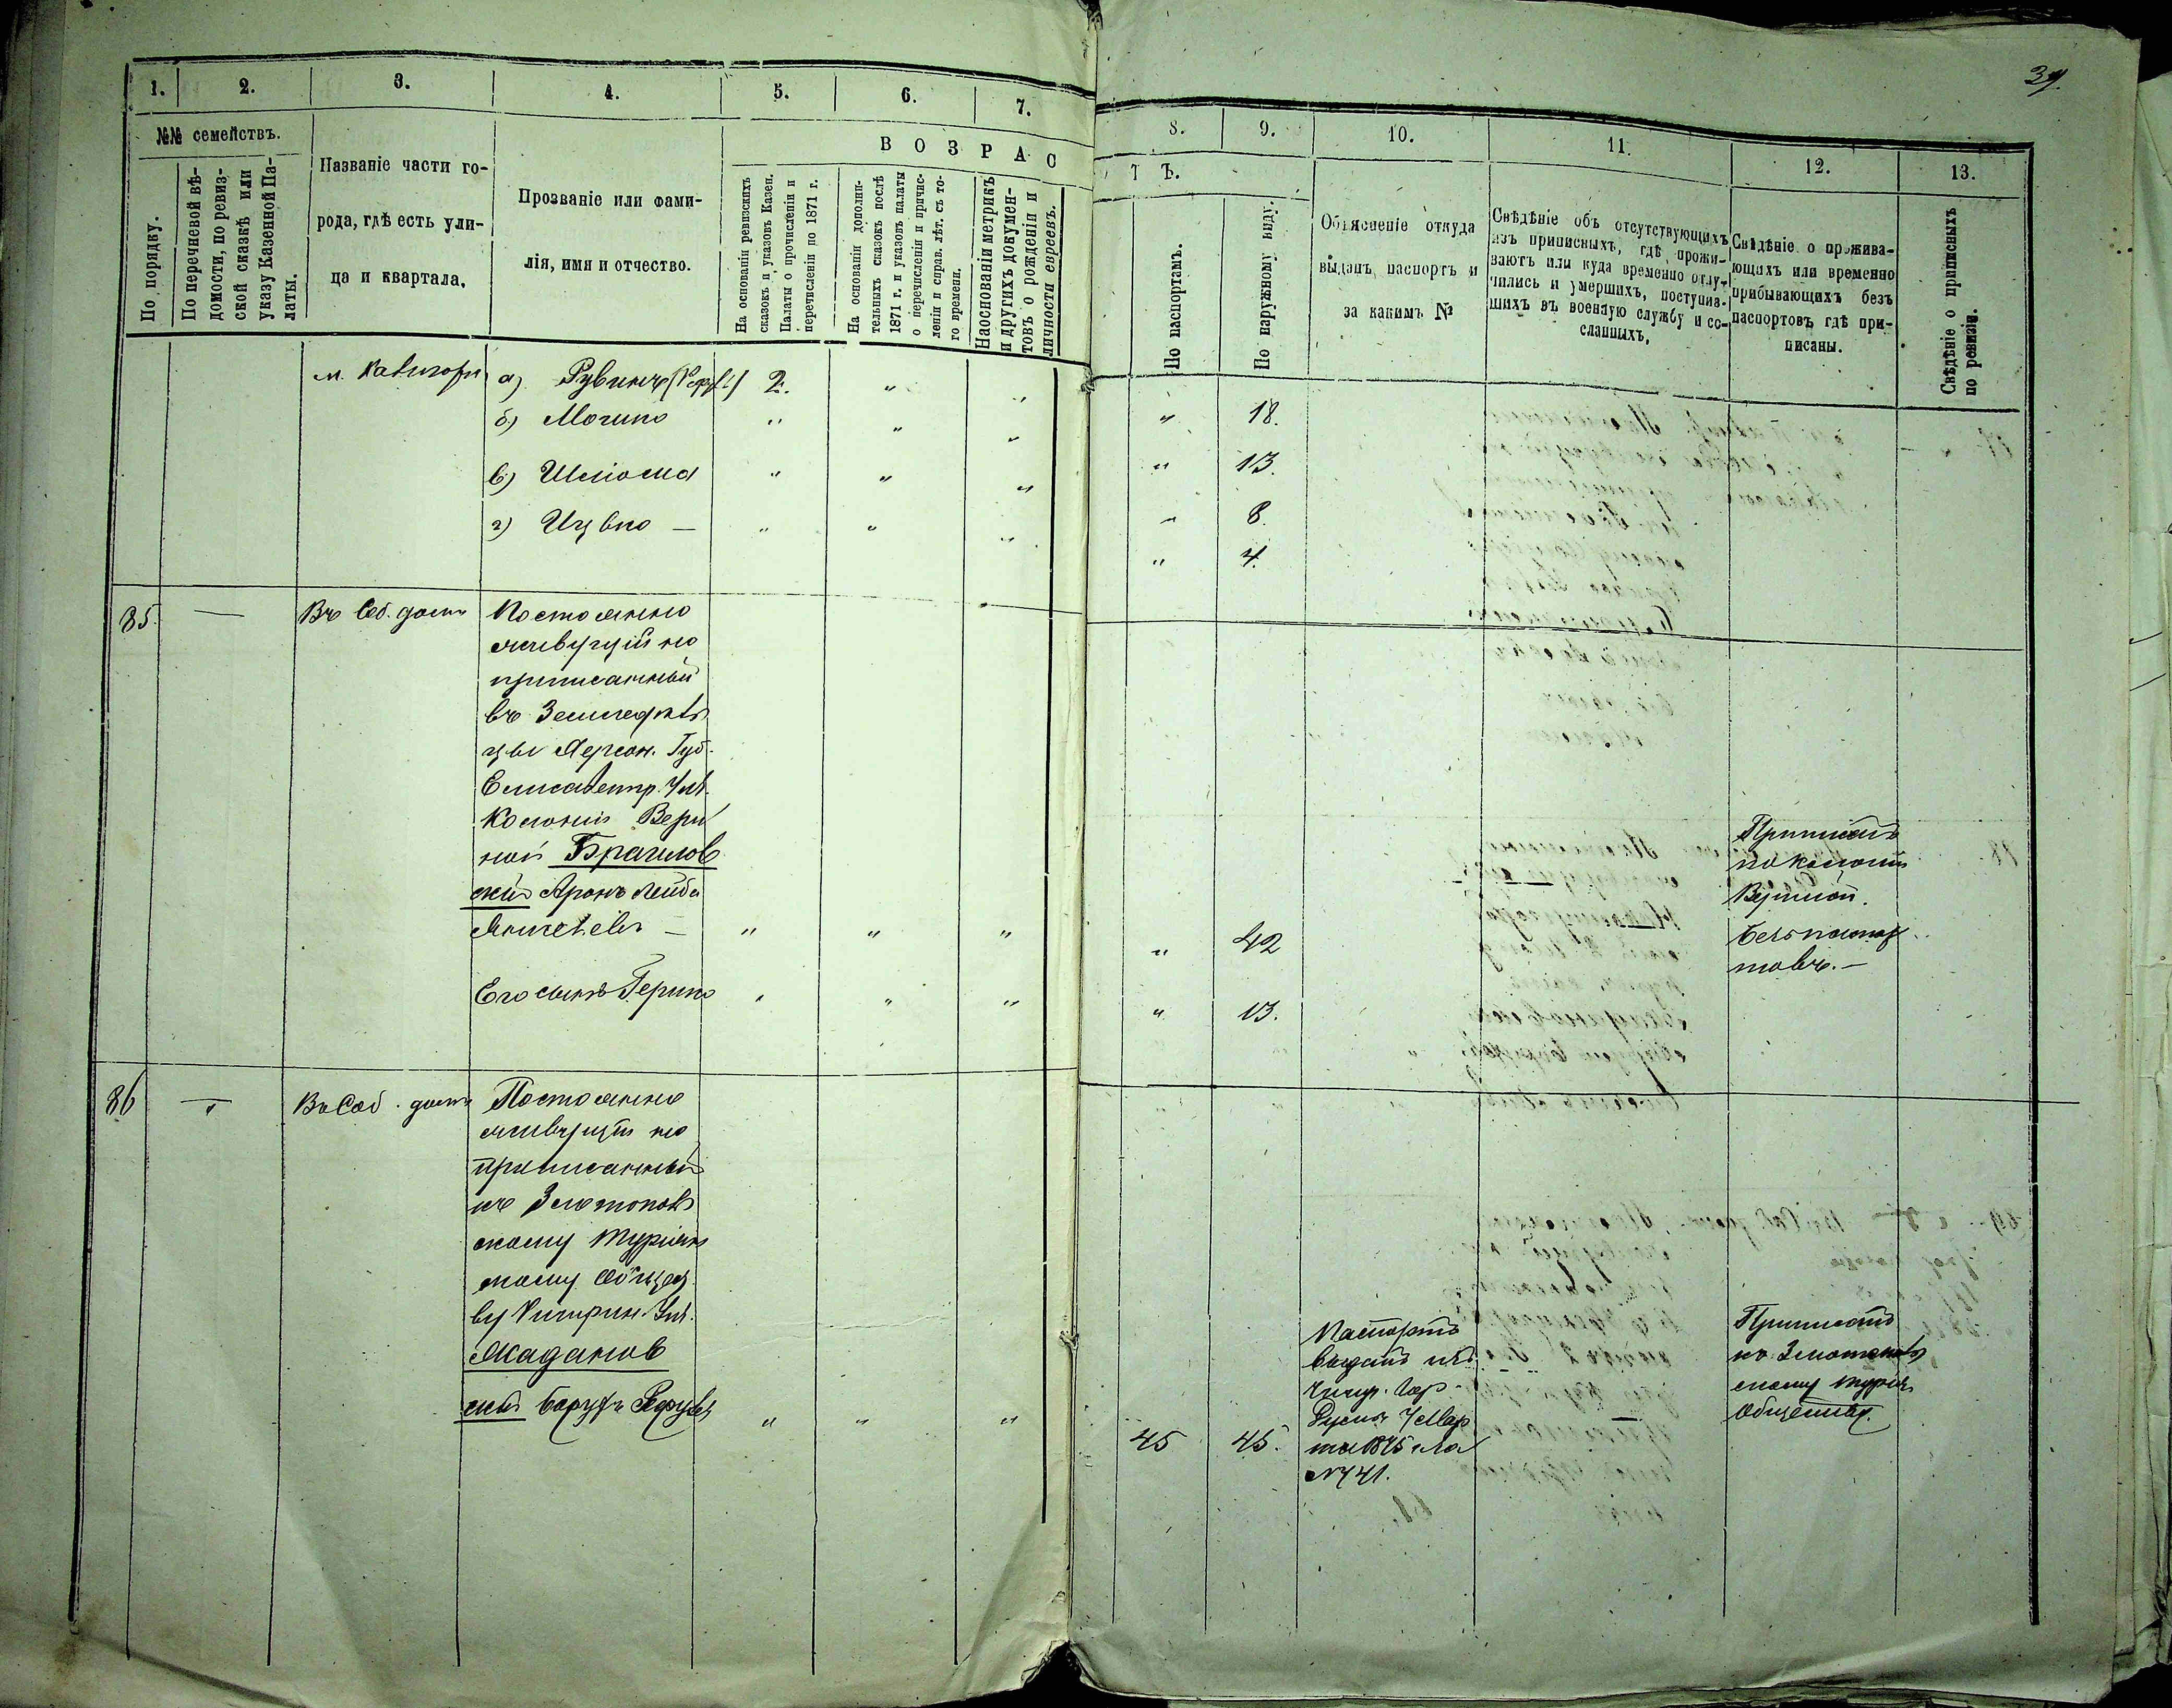 39.
1. 2. 3. 4. 5. 6. 7.
8. 9. 10. 11. 12. 13.
№№ семействъ.
По порядку.
По перечневой вѣ-
домости, по ревиз-
ской сказкѣ или
указу Казенной Па-
латы.
Названіе части го-
рода, гдѣ есть ули-
ца и квартала.
Прозваніе или фами-
лія, имя и отчество.
ВОЗРАС
ТЪ.
На основаніи ревизскихъ
сказокъ и указовъ Казен.
Палаты о прочисленіи и
перечисленіи по 1871 г.
На основаніи дополни-
тельныхъ сказокъ послѣ
1871 г. и указовъ палаты
о перечисленіи и причис-
леніи и справ. лѣт. съ то-
го времени.
На основаніи метрикъ
и другихъ докумен-
товъ о рожденіи и
личности евреевъ.
По паспортамъ.
По наружному виду.
Объясненіе откуда
выданъ паспортъ и
за какимъ №
Свѣдѣніе объ отсутствующихъ
изъ приписныхъ, гдѣ прожи-
ваютъ или куда временно отлу-
чились и умершихъ, поступив-
шихъ въ военную службу и со-
сланныхъ.
Свѣдѣніе о прожива-
ющихъ или временно
прибывающихъ безъ
паспортовъ гдѣ при-
писаны.
Свѣдѣніе о приписныхъ
по ревизіи.
м. а) Рувинъ 2. " " " 18.
б) Мошко " " " " 13.
в) Шліома " " " " 8.
г) Ицко — " " " " 4.
85. — Въ Соб. домѣ Постоянно
живущій но
приписанный
въ Земледѣль
цы Херсон. Губ.
Елисаветгр. Уѣз.
Колоніи
ной Браилов
скій Аронъ Лейба
— " " " " 42
Его сынъ Гершко " " " " 13.
Приписанъ
по колоніи
безъ паспор
товъ. —
86 — Въ Соб. домѣ Постоянно
живущій но
приписанный
къ Златополь
скому
скому Общест
ву Чигирин. Уѣз.
Жаданов
скій Барухъ " " " 45 45.
Паспортъ
выданъ изъ
Чигир. Гор.
Думы 7 Мар
та 1875 за
№ 741.
—
Приписанъ
къ Златополь
скому
Обществу.